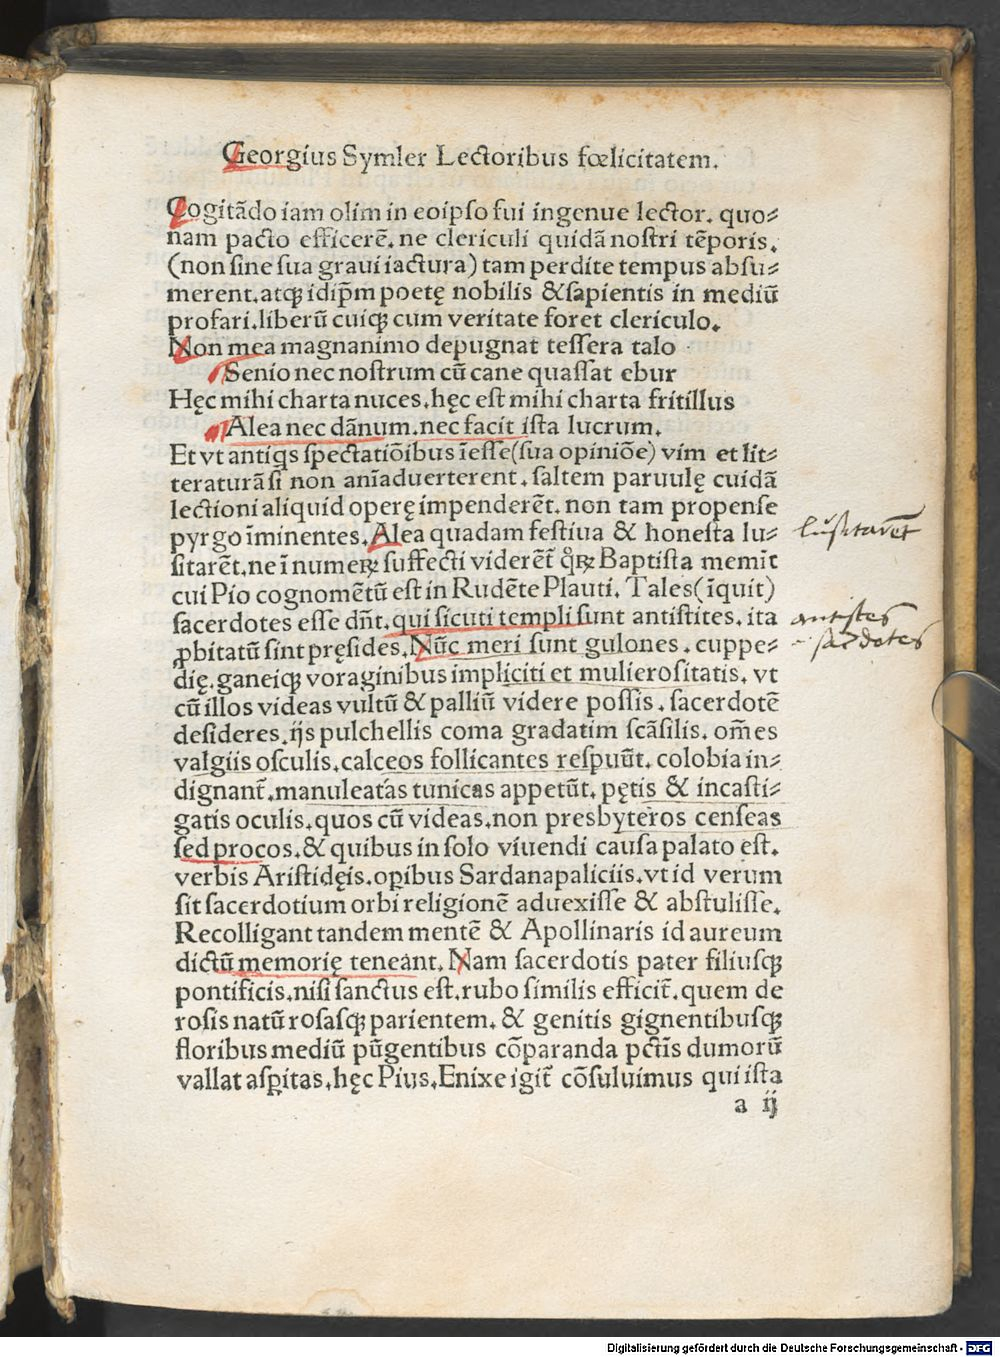 Georgius Symler Lectoribus fœlicitatem.
Cogitādo iam olim in eoipſo fui ingenue lector. quo⸗
nam pacto efficerē. ne clericuli quidā noſtri tēporis.
(non ſine ſua graui iactura) tam perdite tempus abſu⸗
merent. atqꝫ idip̄m poetę nobilis & ſapientis in mediū
profari. liberū cuiqꝫ cum veritate foret clericulo.
Non mea magnanimo depugnat teſſera talo
Senio nec noſtrum cū cane quaſſat ebur
Hęc mihi charta nuces. hęc eſt mihi charta fritillus
Alea nec dānum. nec facit iſta lucrum.
Et vt antiqs ſpectatiōibus īeſſe(ſua opiniōe) vim et lit⸗
teraturā ſi non anīaduerterent. ſaltem paruulę cuidā
lectioni aliquid operę impenderēt. non tam propenſe
pyrgo īminentes. Alea quadam feſtiua & honeſta lu⸗
ſitarēt. ne ī numeꝝ ſuffecti viderēt̄ qͦꝝ Baptiſta memīt
cui Pio cognomētū eſt in Rudēte Plauti. Tales(īquit)
ſacerdotes eſſe dn̄t. qui ſicuti templi ſunt antiſtites. ita
ꝓbitatū ſint pręſides. Nūc meri ſunt gulones. cuppe⸗
dię. ganeiqꝫ voraginibus impliciti et mulieroſitatis. vt
cū illos videas vultū & palliū videre poſſis. ſacerdotē
deſideres. ijs pulchellis coma gradatim ſcāſilis. om̄es
valgiis oſculis. calceos follicantes reſpuūt. colobia in⸗
dignant̄. manuleatas tunicas appetūt. pętis & incaſti⸗
gatis oculis. quos cū videas. non presbyteros cenſeas
ſed procos. & quibus in ſolo viuendi cauſa palato eſt.
verbis Ariſtidęis. oꝑibus Sardanapaliciis. vt id verum
ſit ſacerdotium orbi religionē aduexiſſe & abſtuliſſe.
Recolligant tandem mentē & Apollinaris id aureum
dictū memorię teneant. Nam ſacerdotis pater filiuſqꝫ
pontificis. niſi ſanctus eſt. rubo ſimilis efficit̄. quem de
roſis natū roſaſqꝫ parientem. & genitis gignentibuſqꝫ
floribus mediū pūgentibus cōparanda pctīs dumorū
vallat aſꝑitas. hęc Pius. Enixe igit̄ cōſuluimus qui iſta
a ij
luſitarēt
antiſtes
ſacdotes
Digitalisierung gefördert durch die Deutsche Forschungsgemeinschaft - DFG